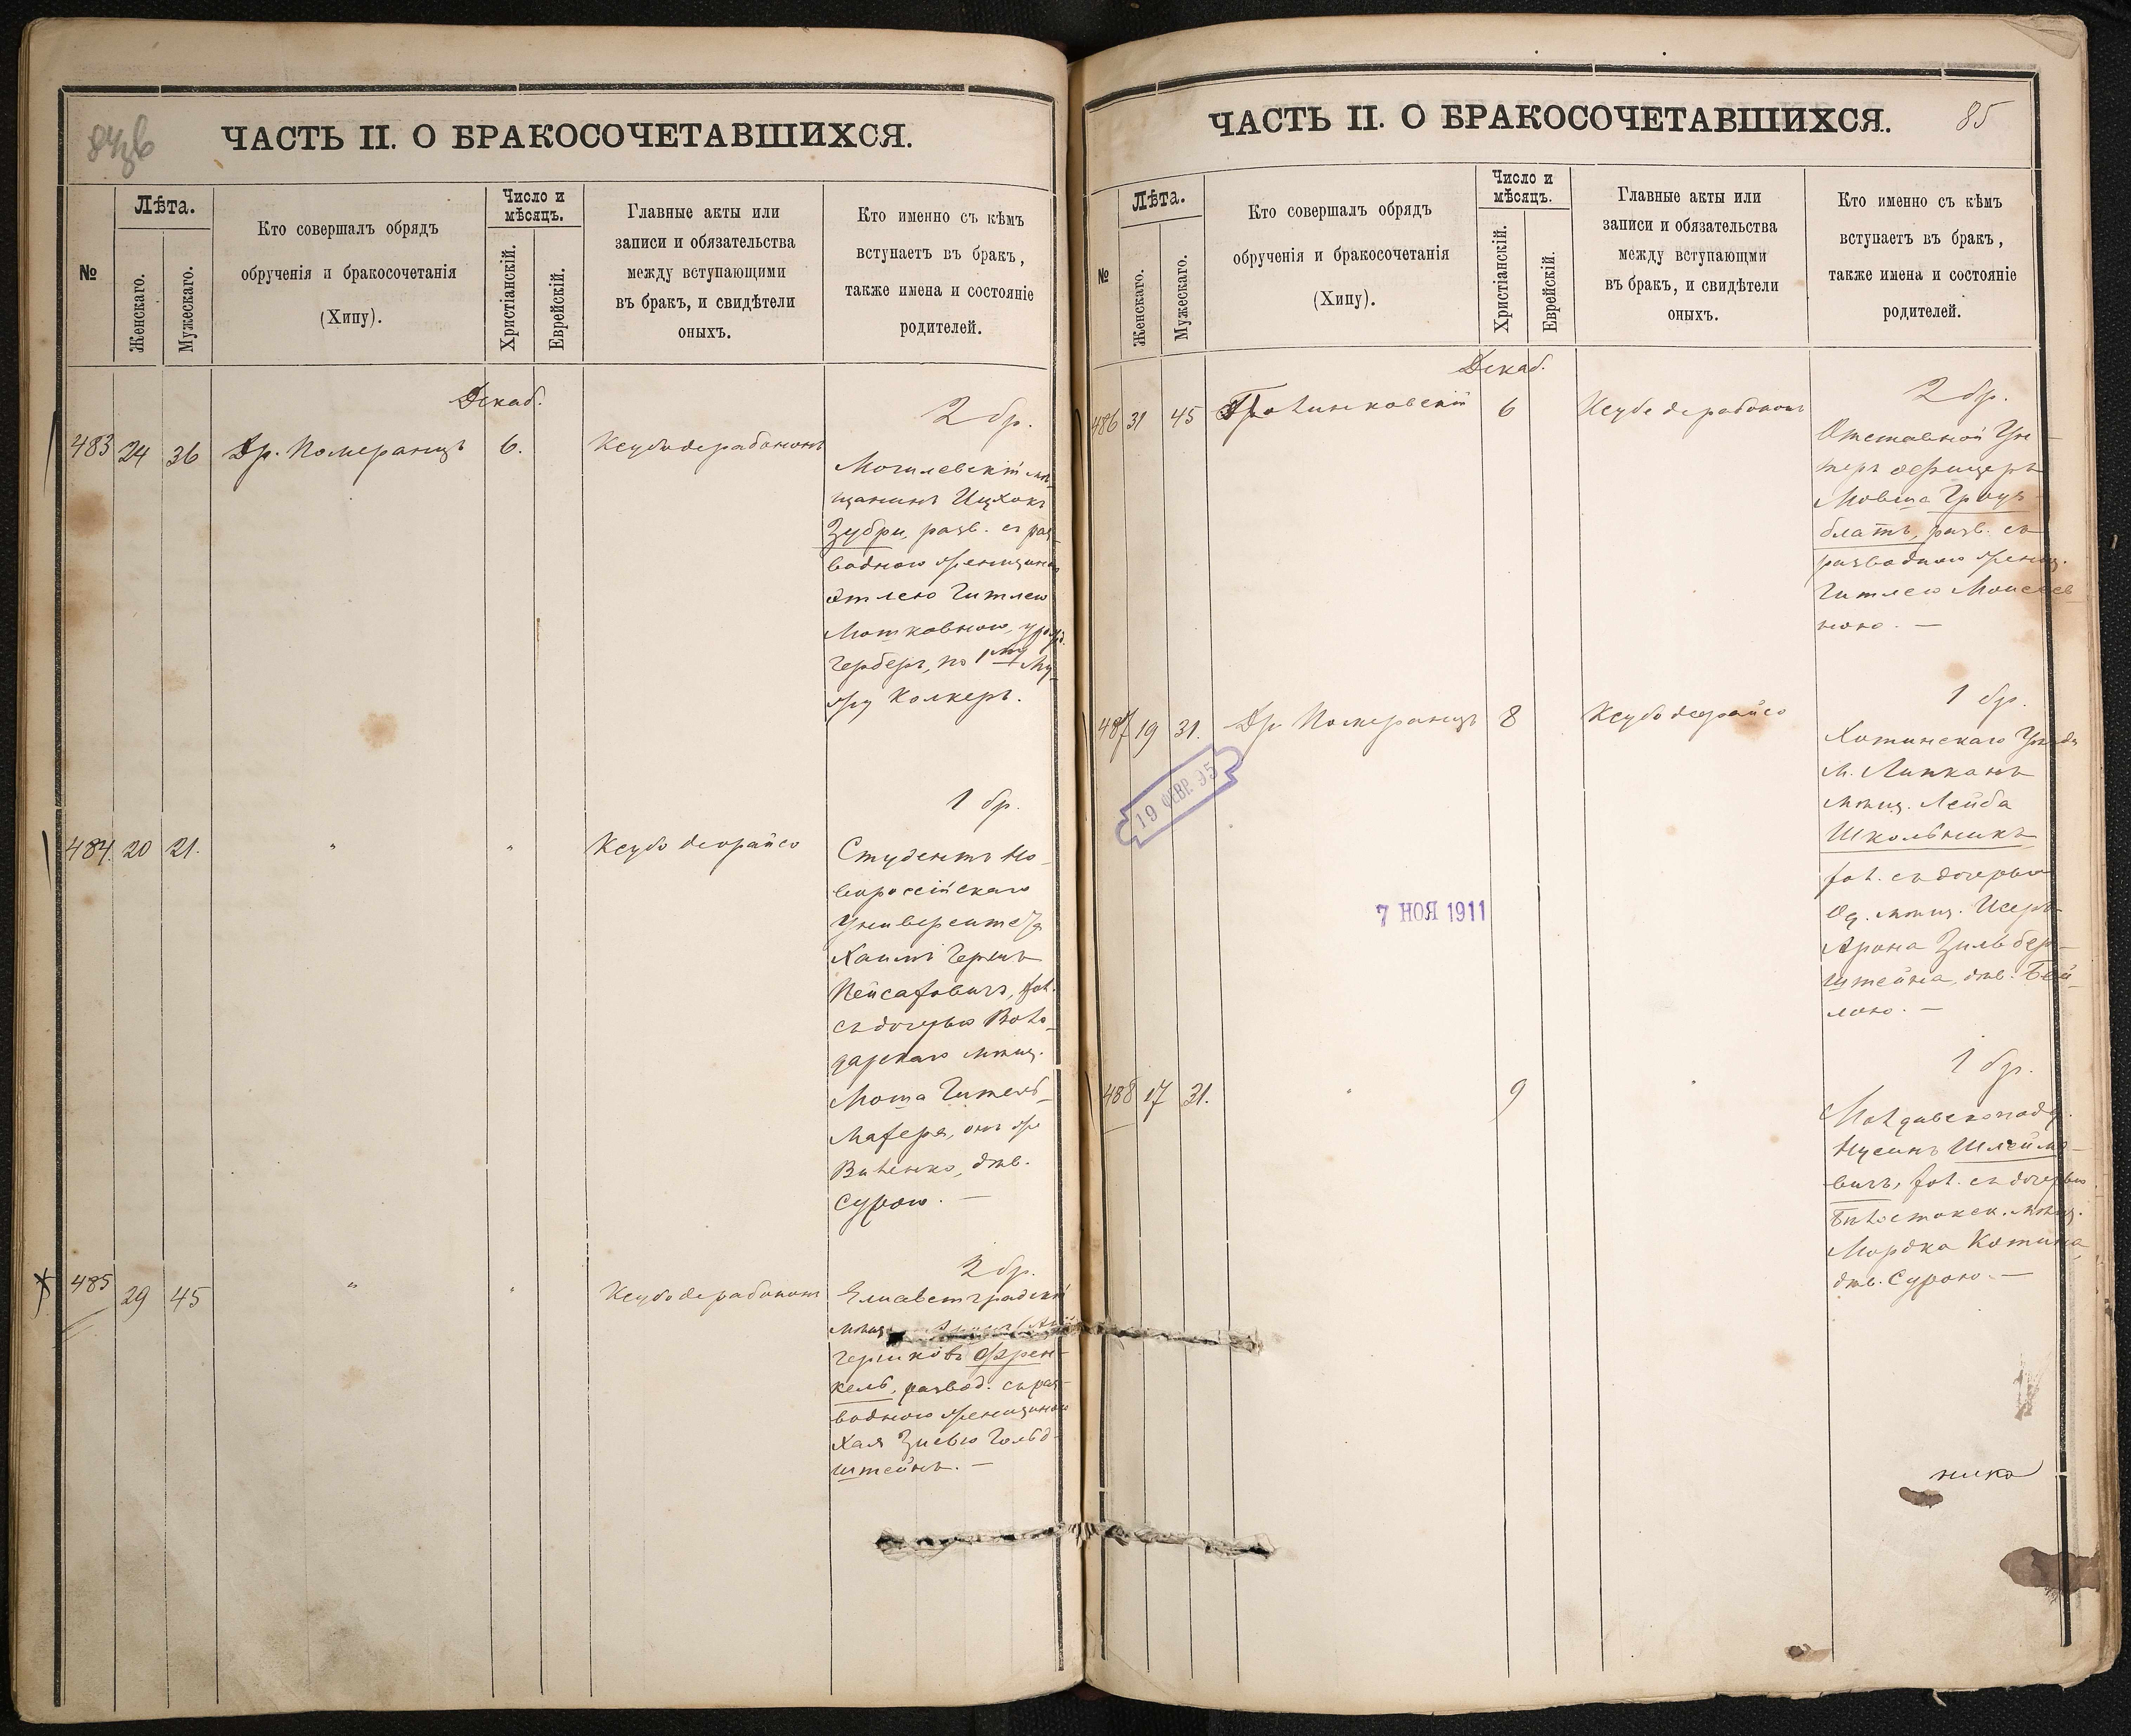 ЧАСТЬ II. О БРАКОСОЧЕТАВШИХСЯ.
№
Лѣта.
Женскаго.
Мужескаго.
Кто совершалъ обрядъ
обрученія и бракосочетанія
(Хипу).
Число и
мѣсяцъ.
Христіанскій.
Еврейскій.
Главные акты или
записи и обязательства
между вступающими
въ бракъ, и свидѣтели
оныхъ.
Кто именно съ кѣмъ
вступаетъ въ бракъ,
также имена и состояніе
родителей.
Декаб.
483 24 36 Др. Померанцъ 6.
2 бр.
Могилевскій мѣ-
щанинъ Ицхокъ
Зубри, разв. съ раз-
водною женщиною
Этлею Гитлею
Мошковною, урожд.
Герберъ, по 1му му-
жу Колкеръ.
484. 20 21. " " Ксубо деорайсо
1 бр.
Студентъ Но-
вороссійскаго
Университета
Хаимъ Гершъ
Пейсаховичъ, хол.
съ дочерью Воло-
дарскаго мѣщ.
Моша Гитель-
Махера, онъ же
Виленко, дѣв.
Сурою. —
485 29 45 " "
2 бр.
Елисаветградскій
мѣщ.
Гершковъ Френ-
кель, развод. съ раз-
водною женщиною
Хая Зисью Гольд-
штейнъ. —
ЧАСТЬ II. О БРАКОСОЧЕТАВШИХСЯ.
85
№
Лѣта.
Женскаго.
Мужескаго.
Кто совершалъ обрядъ
обрученія и бракосочетанія
(Хипу).
Число и
мѣсяцъ.
Христіанскій.
Еврейскій.
Главные акты или
записи и обязательства
между вступающми
въ бракъ, и свидѣтели
оныхъ.
Кто именно съ кѣмъ
вступаетъ въ бракъ,
также имена и состояніе
родителей.
Декаб.
486 31 45 6
2 бр.
Отставной Ун-
теръ офицеръ
Мовша Грауз-
блатъ, разв. съ
разводною женщ.
Гитлею Моисеев-
ною. —
487 19 31. Др. Померанцъ 8 Ксубо деорайсо
1 бр.
Хотинскаго Уѣзда
м. Липканъ
мѣщ. Лейба
Школьникъ
хол. съ дочерью
Од. мѣщ. Исеръ
Арона Зильбер-
штейна, дѣв. Бей-
лою. —
19 ФЕВР. 95
7 НОЯ 1911
488 17 31. " 9 "
1 бр.
Молдавскоподд.
Нусинъ Шлеймо-
вичъ, хол. съ дочерью
Бѣлостокск. мѣщ.
Мордка Котика,
дѣв. Сурою. —
ника